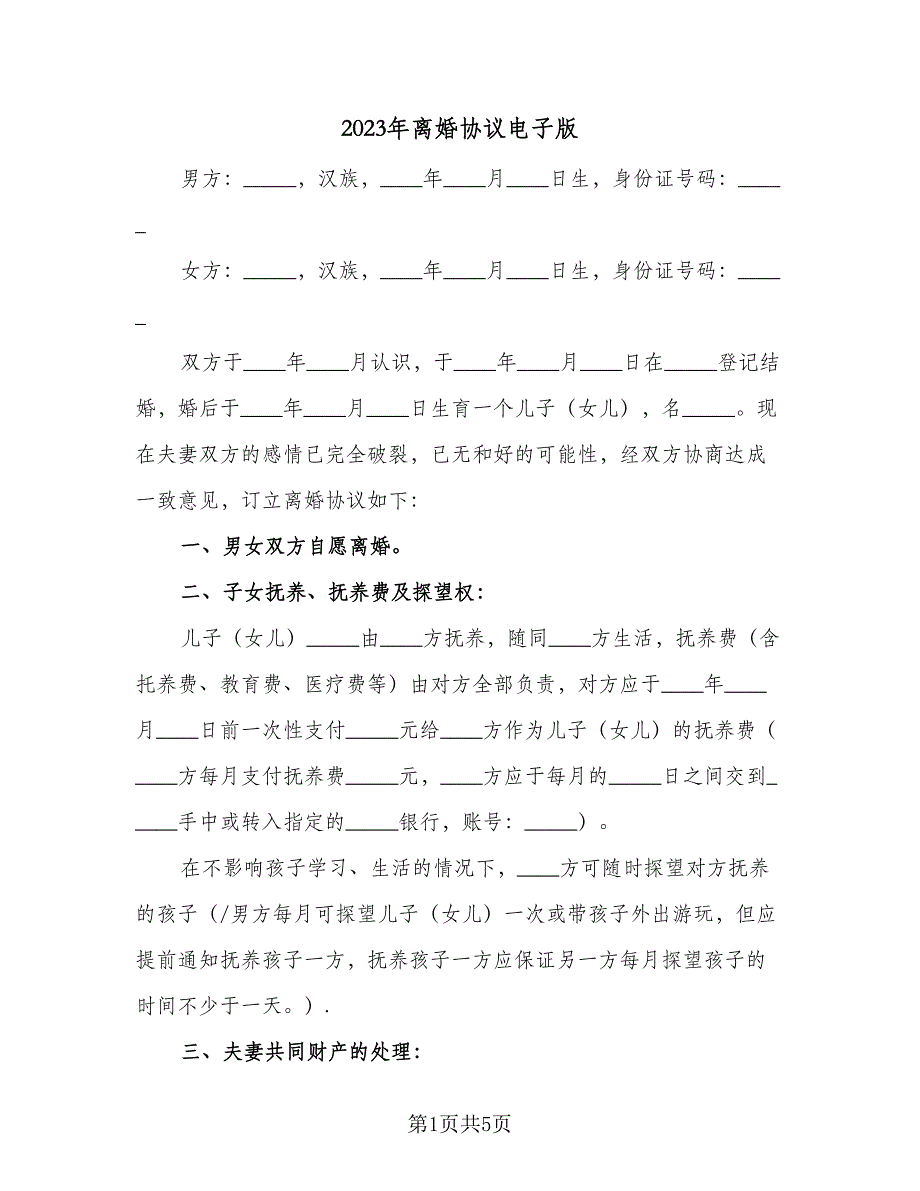 2023年离婚协议电子版
男方：_____，汉族，____年____月____日生，身份证号码：____
_
女方：_____，汉族，____年____月____日生，身份证号码：____
_
双方于____年____月认识，于____年____月____日在_____登记结
婚，婚后于____年____月____日生育一个儿子（女儿），名_____。现
在夫妻双方的感情已完全破裂，已无和好的可能性，经双方协商达成
一致意见，订立离婚协议如下：
一、男女双方自愿离婚。
二、子女抚养、抚养费及探望权：
儿子（女儿）_____由____方抚养，随同____方生活，抚养费（含
托养费、教育费、医疗费等）由对方全部负责，对方应于____年____
月____日前一次性支付_____元给____方作为儿子（女儿）的抚养费（
____方每月支付抚养费_____元，____方应于每月的_____日之间交到_
____手中或转入指定的_____银行，账号：_____）。
在不影响孩子学习、生活的情况下，____方可随时探望对方抚养
的孩子（/男方每月可探望儿子（女儿）一次或带孩子外出游玩，但应
提前通知抚养孩子一方，抚养孩子一方应保证另一方每月探望孩子的
时间不少于一天。）.
三、夫妻共同财产的处理：
第1页共5页